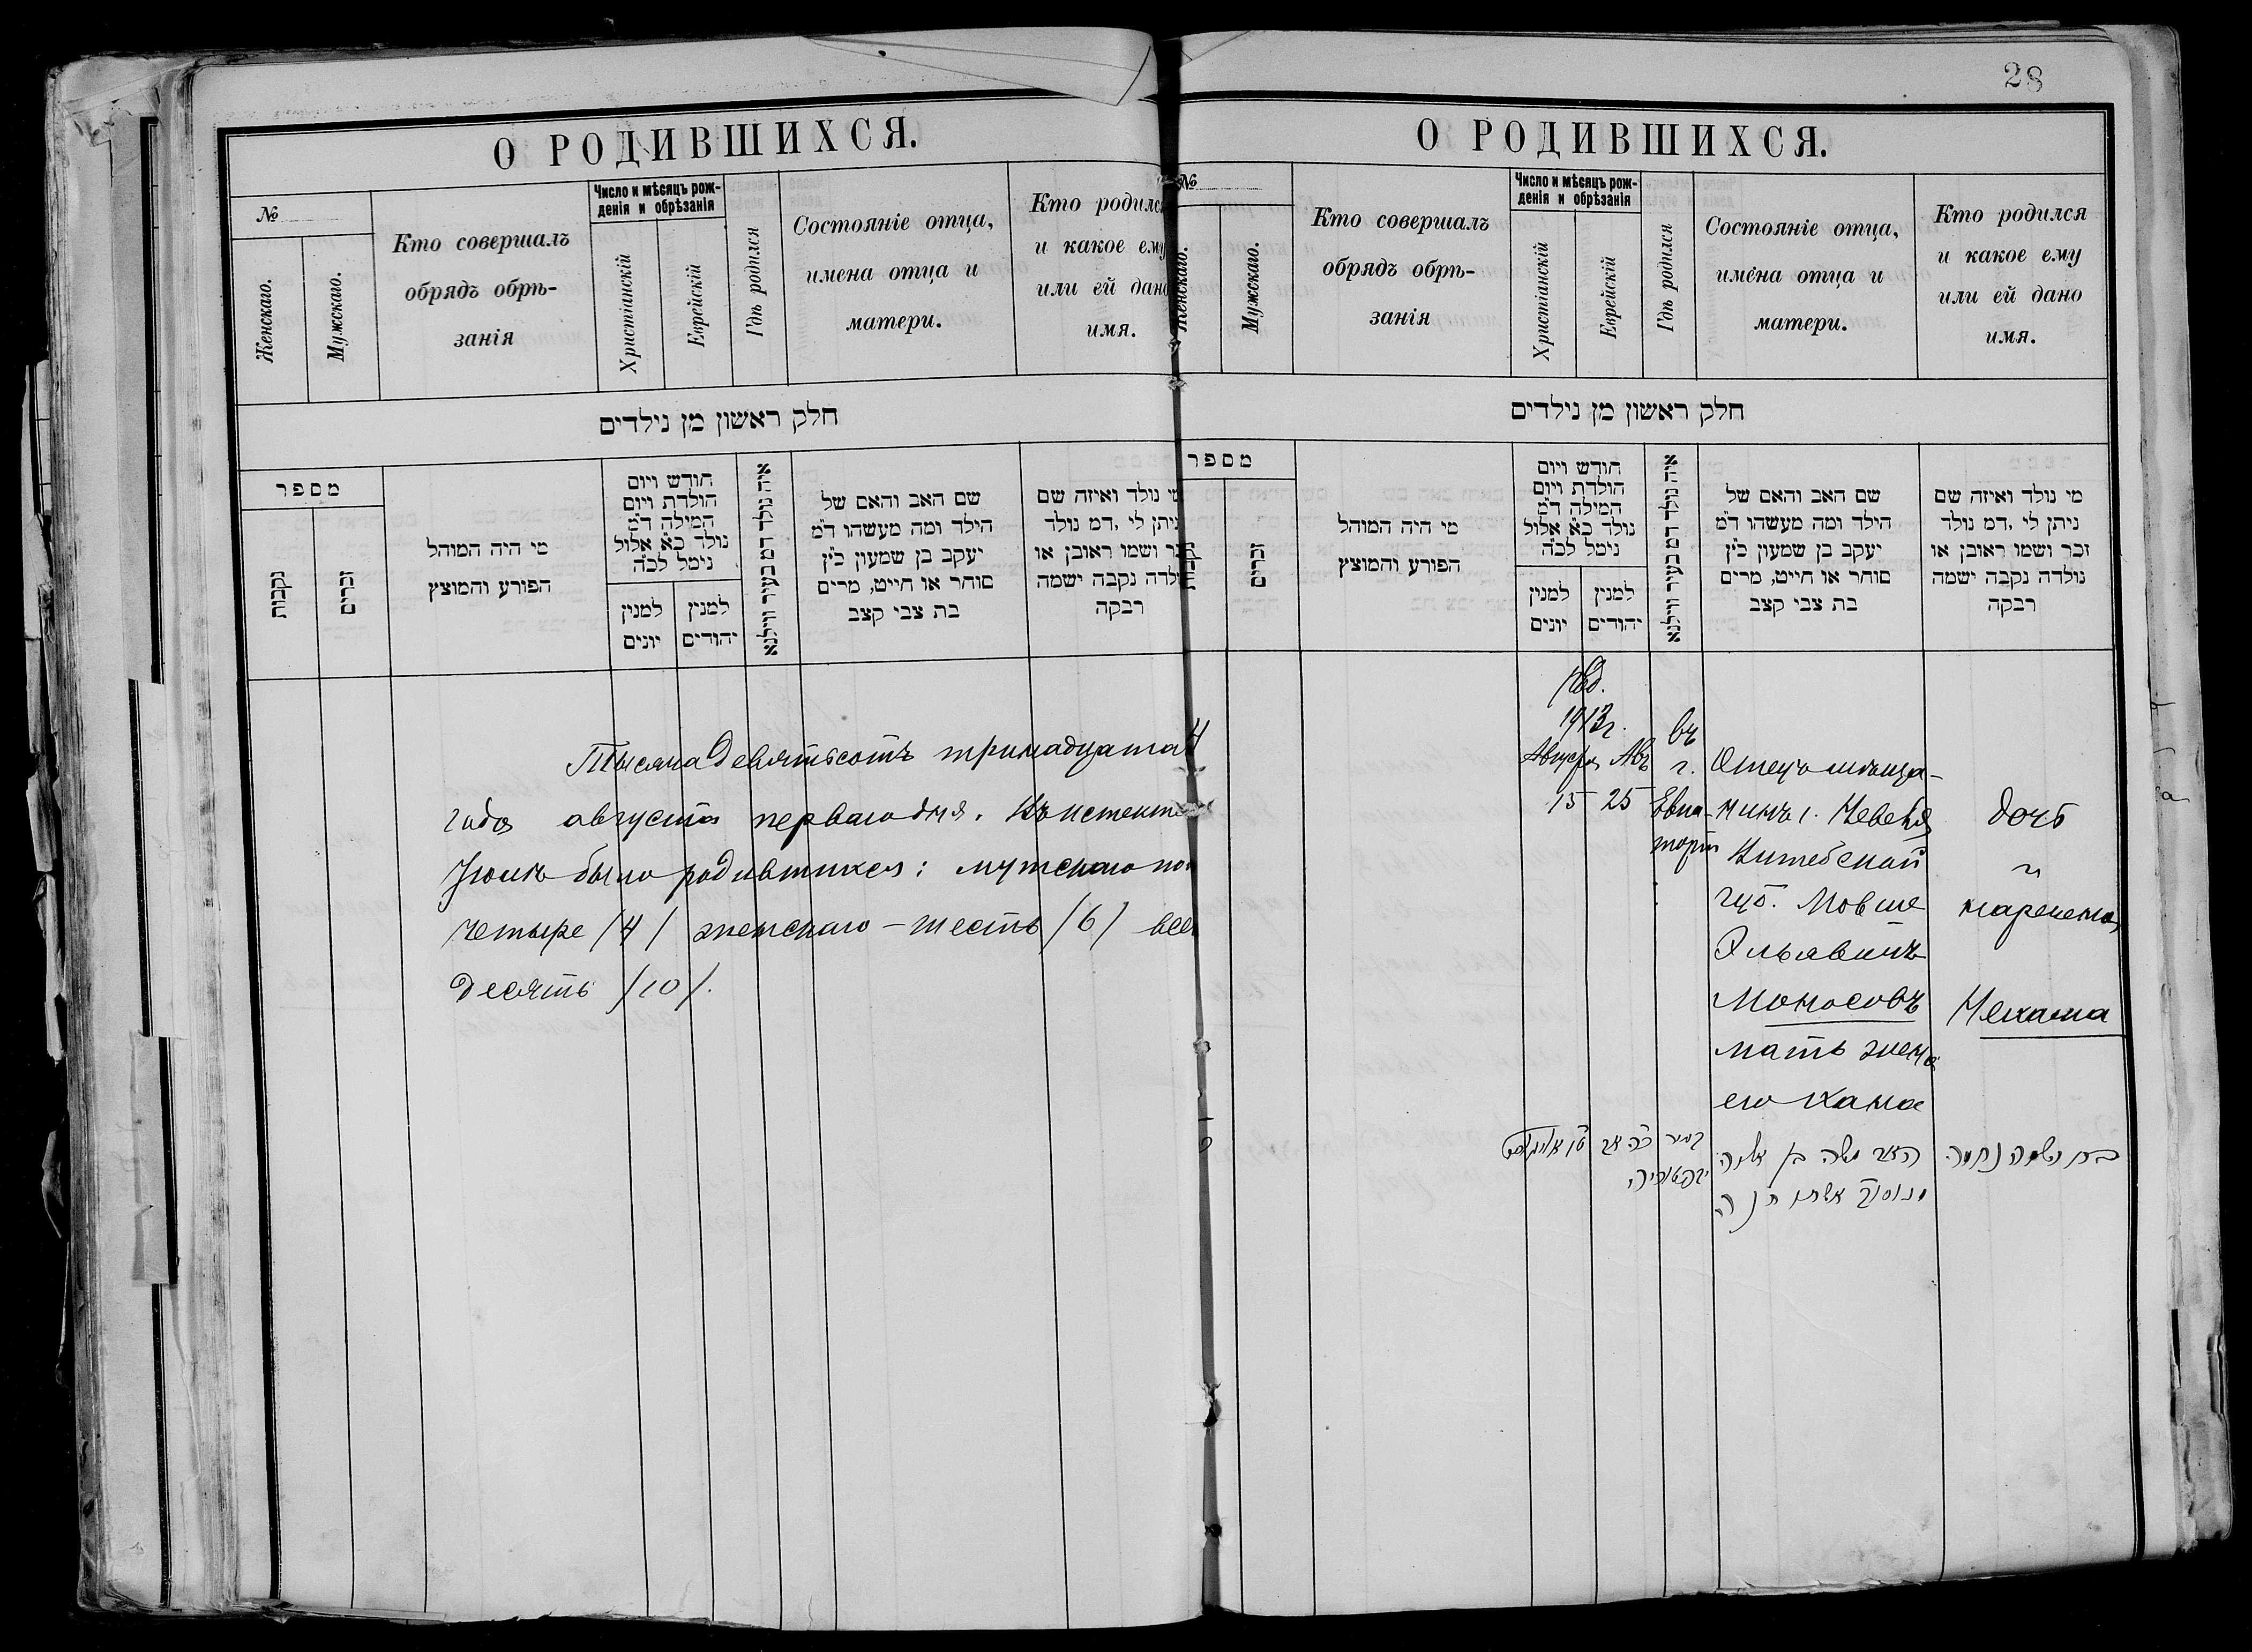 О РОДИВШИХСЯ.
№
Женскаго.
Мужскаго.
Кто совершалъ
обрядъ обрѣ-
занія
Число и мѣсяцъ рож-
денія и обрѣзанія
Христіанскій
Еврейскій
Гдѣ родился
Состояніе отца,
имена отца и
матери.
Кто родилс
и какое ему
или ей дано
имя.
חלק ראשון מן נילדים
מספר
נקבות
זכרים
מי היה המוהל
הפורע והמוצץ
חודש ויום
הולדת ויום
המילה ד״מ
נולד כ״א אלול
נימל לכ״ה
למנין
יונים
למנין
יהודים
איה נולד דמ בעיר ווילנא
שם האב והאם של
הילד ומה מעשהו ד״מ
יעקב בן שמעון כ״ץ
סוחר או חייט, מרים
בת צבי קצב
מי נולד ואיזה שם
ניתן לי, דמ נולד
זכר ושמו ראובן או
נולדה נקבה ישמה
רבקה
Тысяча девятьсотъ тринадцата
года августа перваго дня. Въ истекше
Іюлѣ было родившихся: мужскаго по
четыре /4/ женскаго – шесть /6/ все
десять /10/.
28
О РОДИВШИХСЯ.
№
Женскаго.
Мужскаго.
Кто совершалъ
обрядъ обрѣ-
занія
Число и мѣсяцъ рож-
денія и обрѣзанія
Христіанскій
Еврейскій
Гдѣ родился
Состояніе отца,
имена отца и
матери.
Кто родился
и какое ему
или ей дано
имя.
חלק ראשון מן נילדים
מספר
נקבות
זכרים
מי היה המוהל
הפורע והמוצץ
חודש ויום
הולדת ויום
המילה ד״מ
נולד כ״א אלול
נימל לכ״ה
למנין
יונים
למנין
יהודים
איה נולד דמ בעיר ווילנא
שם האב והאם של
הילד ומה מעשהו ד״מ
יעקב בן שמעון כ״ץ
סוחר או חייט, מרים
בת צבי קצב
מי נולד ואיזה שם
ניתן לי, דמ נולד
זכר ושמו ראובן או
נולדה נקבה ישמה
רבקה
4
1913 г.
Августа
15
Авъ
25
въ
г.
Евпа-
торіи
Отецъ мѣща-
нинъ г. Невеля
Витебской
губ. Мовше
Эльявичъ
Моносовъ
мать жена
его Хана
дочь
и
наречена
Нехама
האב משה בן אליה
מנוסוב אשתו חנה
בת ושמה נחמה
בעיר
כ״ה אב
ט״ו אויגוסט